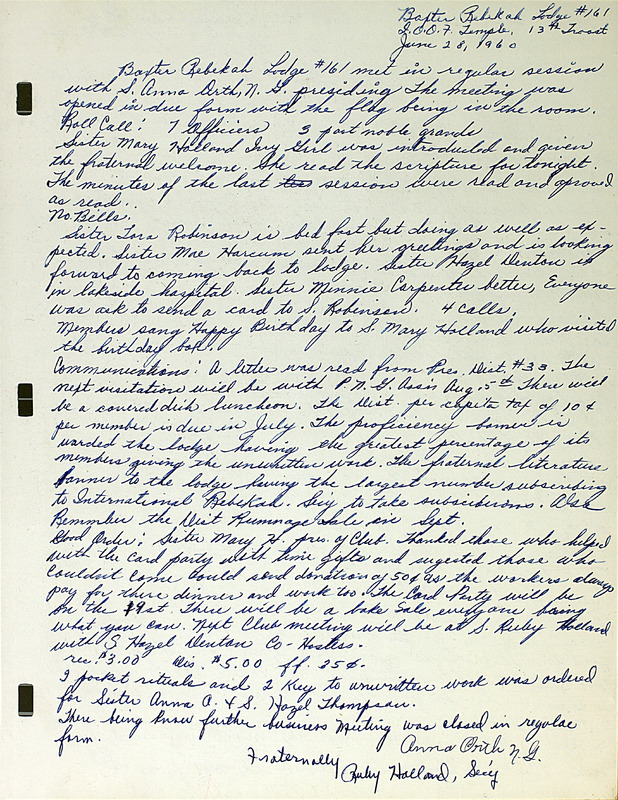 Baxter Rebekah Lodge #161
I.O.O.F. Temple, 13th Troost
June 28, 1960
Baxter Rebekah Lodge #161 met in regular session
with S. Anna Orth, N.G. presiding The meeting was
opened in due form with the flag being in the room.
Roll Call: 7 Officers 3 past noble grands
Sister Mary Holland Ivy Girl was introducted and given
the fraternal welcome. She read the scripture for tonight.
The minutes of the last session were read and aproved
as read.
No Bills.
Sister Robinson is bed fast but doing as well as ex-
pected. Sister Mae Harcum sent her greetings and is looking
forward to coming back to lodge. Sister Hazel Denton is
in lakeside hospital. Sister Minnie Carpenter better, Everyone
was ask to send a card to S. Robinson. 4 calls.
Members sang Happy Birthday to S. Mary Holland who visited
the birthday box.
Communications: A letter was read from Pres. Dist. #33. The
next visitation will be with P.N.G. Assn Aug. 5th There will
be a covered dish luncheon. The Dist. per capita tax of 10¢
per member is due in July. The proficiency banner is
warded the lodge having the greatest percentage of its
members giving the unwritten work. The fraternal literature
banner to the lodge having the largest number subscribing
to International Rebekah. Sec'y to take subscriberons. Also
Remmber the Dist Rummage Sale in Sept.
Good Order: Sister Mary H. pres. of Club. Thanked those who helped
with the card party with time gifts and sugested those who
couldn't come could send donation of 50¢ as the workers always
pay for there dinner and work too. The Card Party will be
on the 19st. There will be a bake Sale everyone bring
what you can. Next Club meeting will be at S. Ruby Holland
with S Hazel Denton Co-Hostess.
rec. $3.00 Dis. $5.00 ff. 25¢.
pocket rituals and 2 Key to unwritten work was ordered
for Sister Anna O. & S. Hazel Thompson.
There being know further business Meeting was closed in regular
form.
Anna Orth N.G.
Fraternally
Ruby Holland, Sec'y